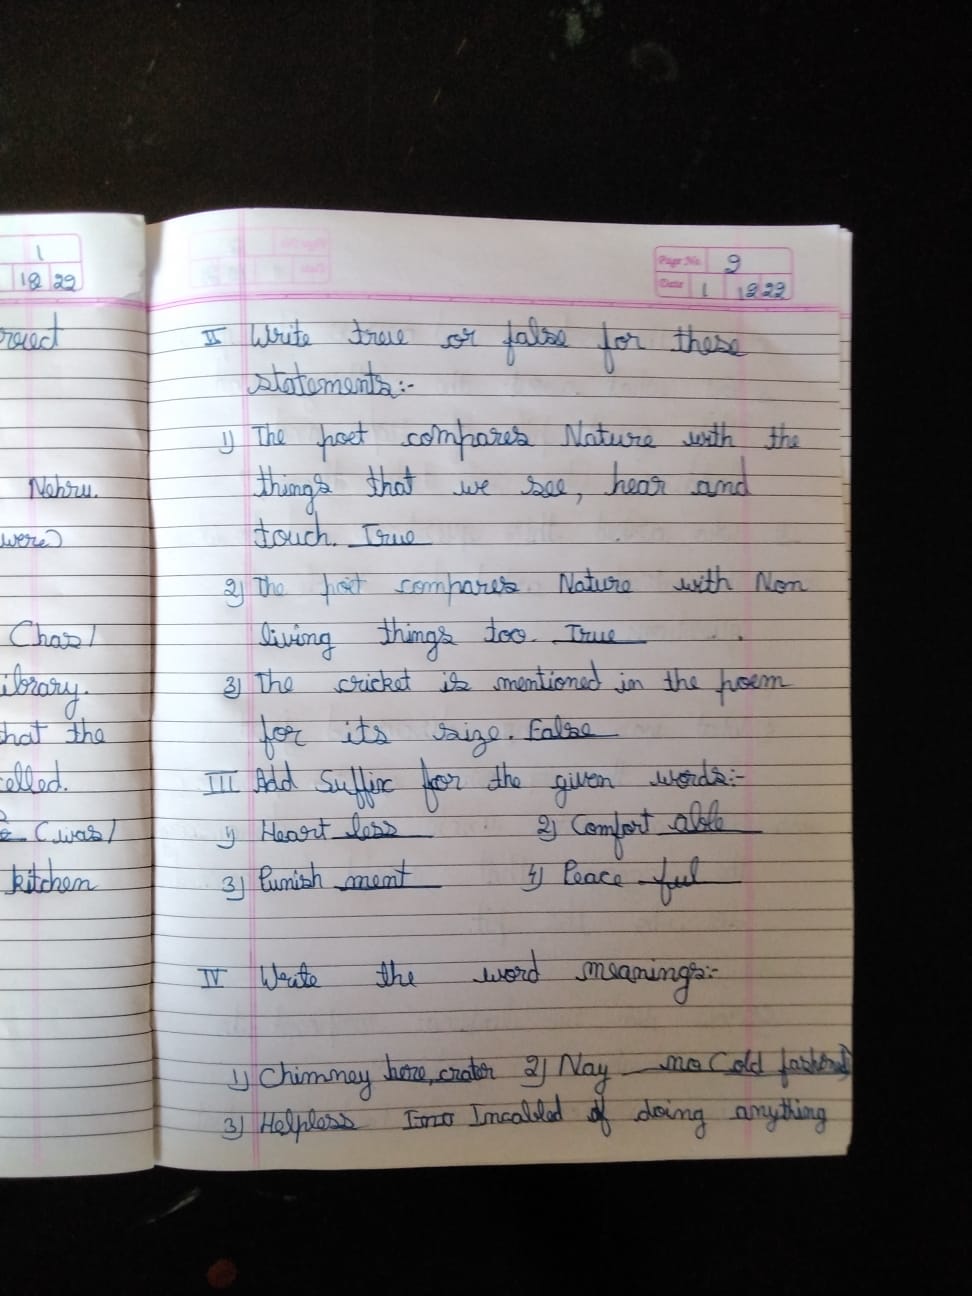 1
12 22
Nehru.
were)
Chas/
ibrary.
that the
celled.
(was/
kitchen
Page No. 2
Date 1 12 22
II Write true or false for these
statements:-
1) The poet compares Nature with the
things that we see, hear and
touch. True
2) The poet compares Nature with Non
living things too. True
3) The cricket is mentioned in the poem
for its size. False
III Add Suffix for the given words:-
1) Heart less 2) Comfort able
3) Punish ment 4) Peace ful
IV Write the word meanings:-
1) Chimney here, crater 2) Nay no (old fashioned)
3) Helpless Incabled of doing anything